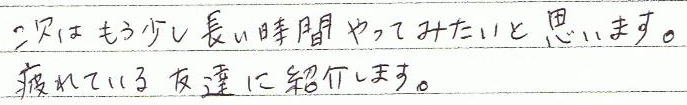 次はもう少し長い時間やってみたいと思います。
疲れている友達に紹介します。